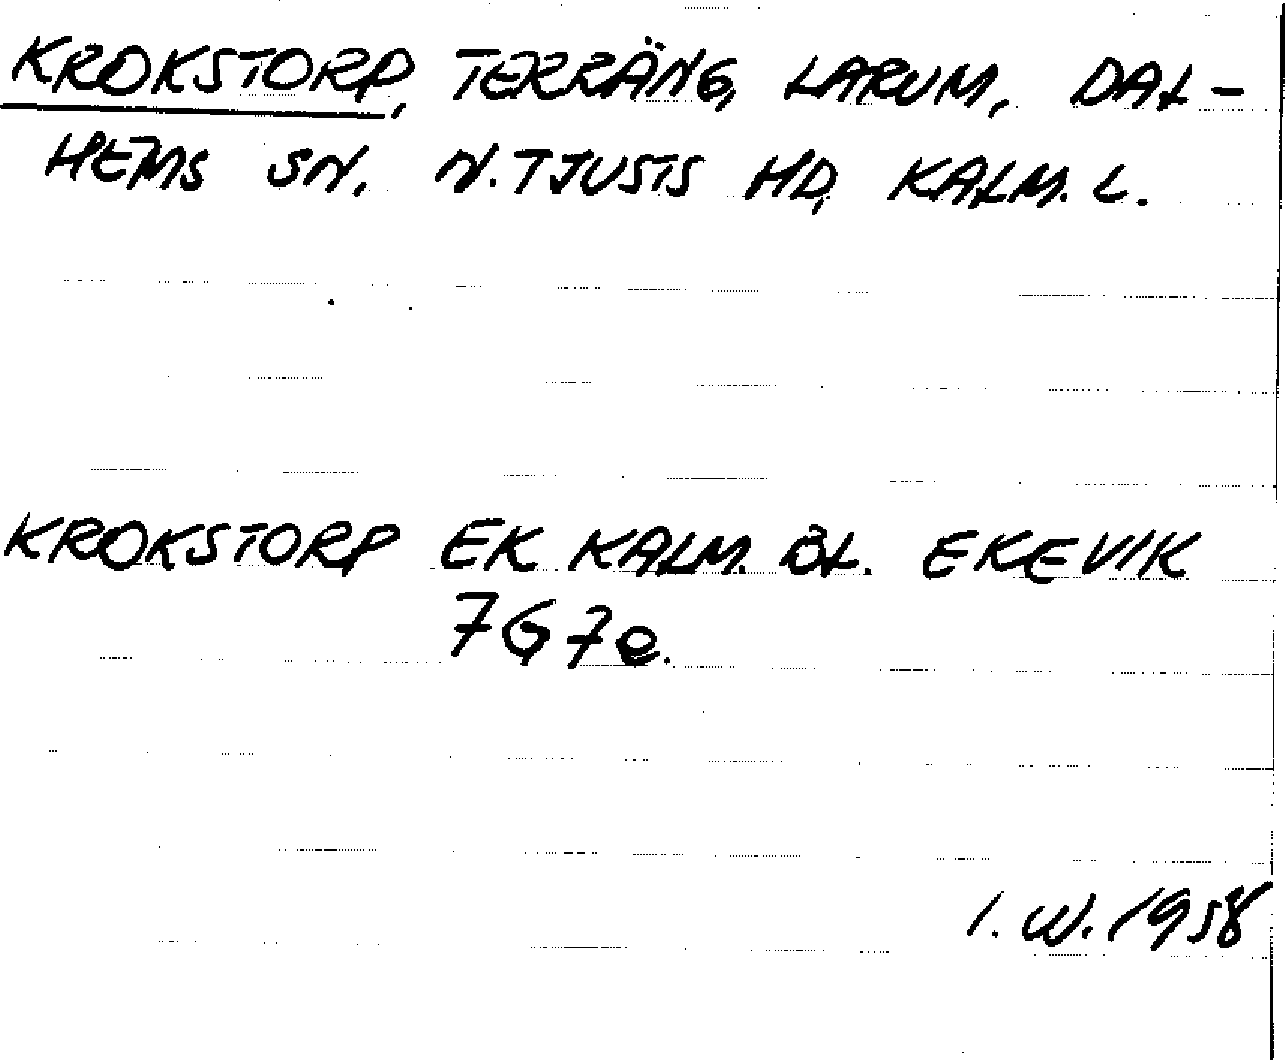 KROKSTORP, TERRÄNG, LARUM, DAL-
HEMS SN. N. TJUSTS HD, KALM. L.
KROKSTORP EK KALM. ÖL. EKEVIK
7G7e.
I. W. 1958